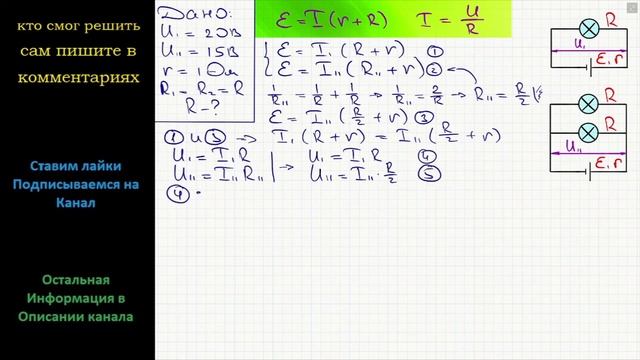 кто смог решить
сам пишите в
комментариях
Ставим лайки
Подписываемся на
Канал
Остальная
Информация в
Описании канала
Дано:
U₁ = 20В
U₁₁ = 15В
r = 1 Ом
R₁ = R₂ = R
R - ?
ℰ = I (r + R) I = U/R
{ ℰ = I₁ (R + r) ①
{ ℰ = I₁₁ (R₁₁ + r) ②
1/R₁₁ = 1/R + 1/R → 1/R₁₁ = 2/R → R₁₁ = R/2
ℰ = I₁₁ (R/2 + r) ③
① и ③ → I₁ (R + r) = I₁₁ (R/2 + r)
U₁ = I₁ R → U₁ = I₁ R ④
U₁₁ = I₁₁ R₁₁ → U₁₁ = I₁₁ · R/2 ⑤
④
R
U₁
ℰ, r
R
R
U₁₁
ℰ, r